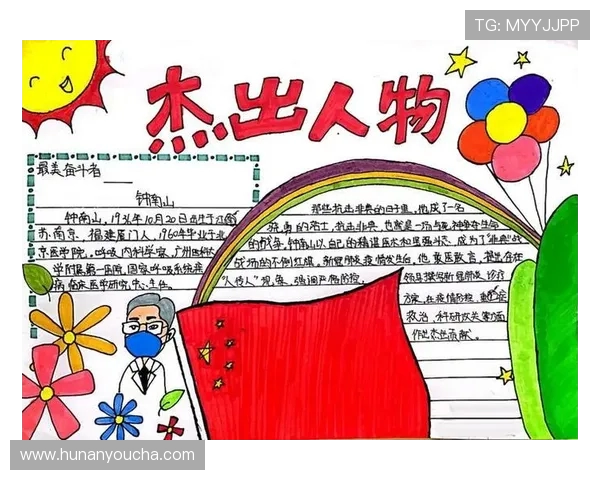 TG: MYYJJPP
杰出人物
最美奋斗者
钟南山
钟南山,1936年10月20日出生于江苏
南京,福建厦门人,1960年毕业于北
京医学院,呼吸内科学家,广州医科大
学附属第一医院,国家呼吸系统疾
病临床医学研究中心主任。
那些抗击非典的日子里,他成了一名
的战争,钟南山以自己的精湛医术和坚强斗志,成为了“非典”战
战场的不倒红旗,新冠肺炎疫情发生后,他敢医敢言,提出存在
“人传人”现象,强调严格防控,
领导撰写新冠肺炎诊疗
方案,在疫情防控、重症
救治,科研攻关等方面
作出杰出贡献。
www.hunanyoucha.com